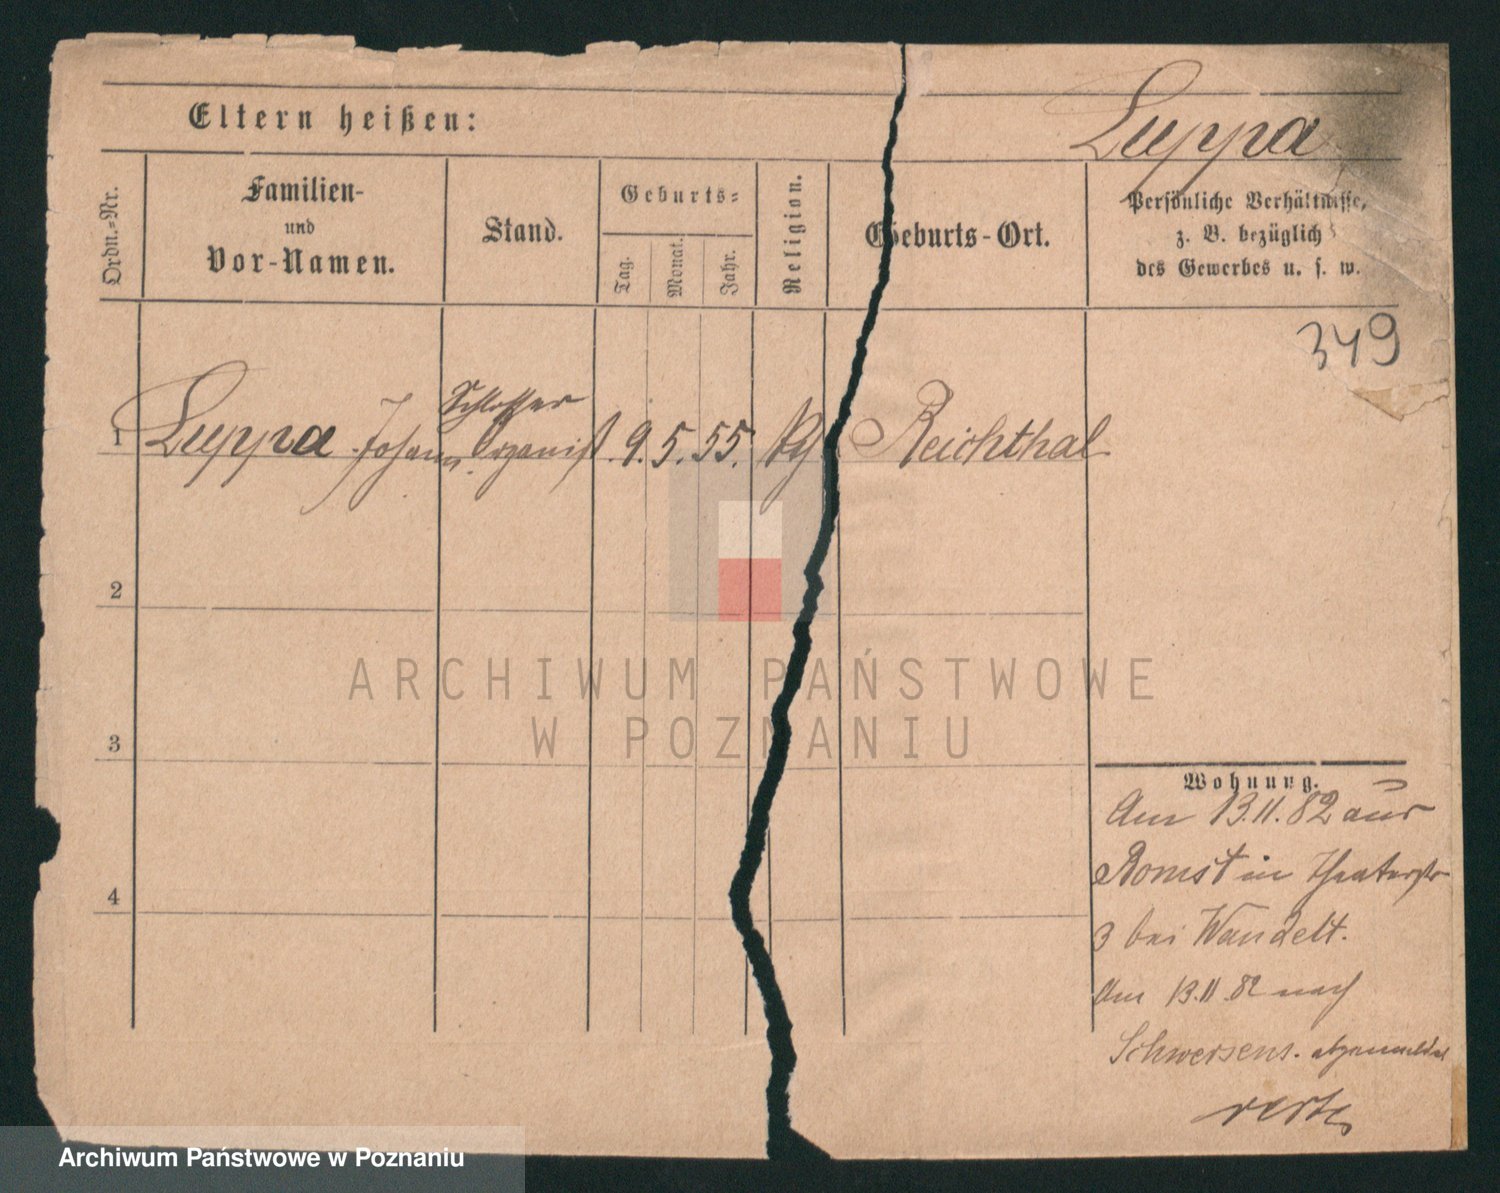 Eltern heißen:
Luppa
Ordn.-Nr.
Familien-
und
Vor-Namen.
Stand.
Geburts-
Tag.
Monat.
Jahr.
Religion.
Geburts-Ort.
Persönliche Verhältnisse,
z. B. bezüglich
des Gewerbes u. s. w.
349
Schlosser
1 Luppa Johann Organist 9. 5. 55. Reichthal
2
3
4
Wohnung.
Am 13.11.82 aus
Bomst in Theaterstr
3 bei Wandelt.
Am 13.11.82 nach
Schwersens. abgemeldet
ARCHIWUM PAŃSTWOWE
W POZNANIU
Archiwum Państwowe w Poznaniu